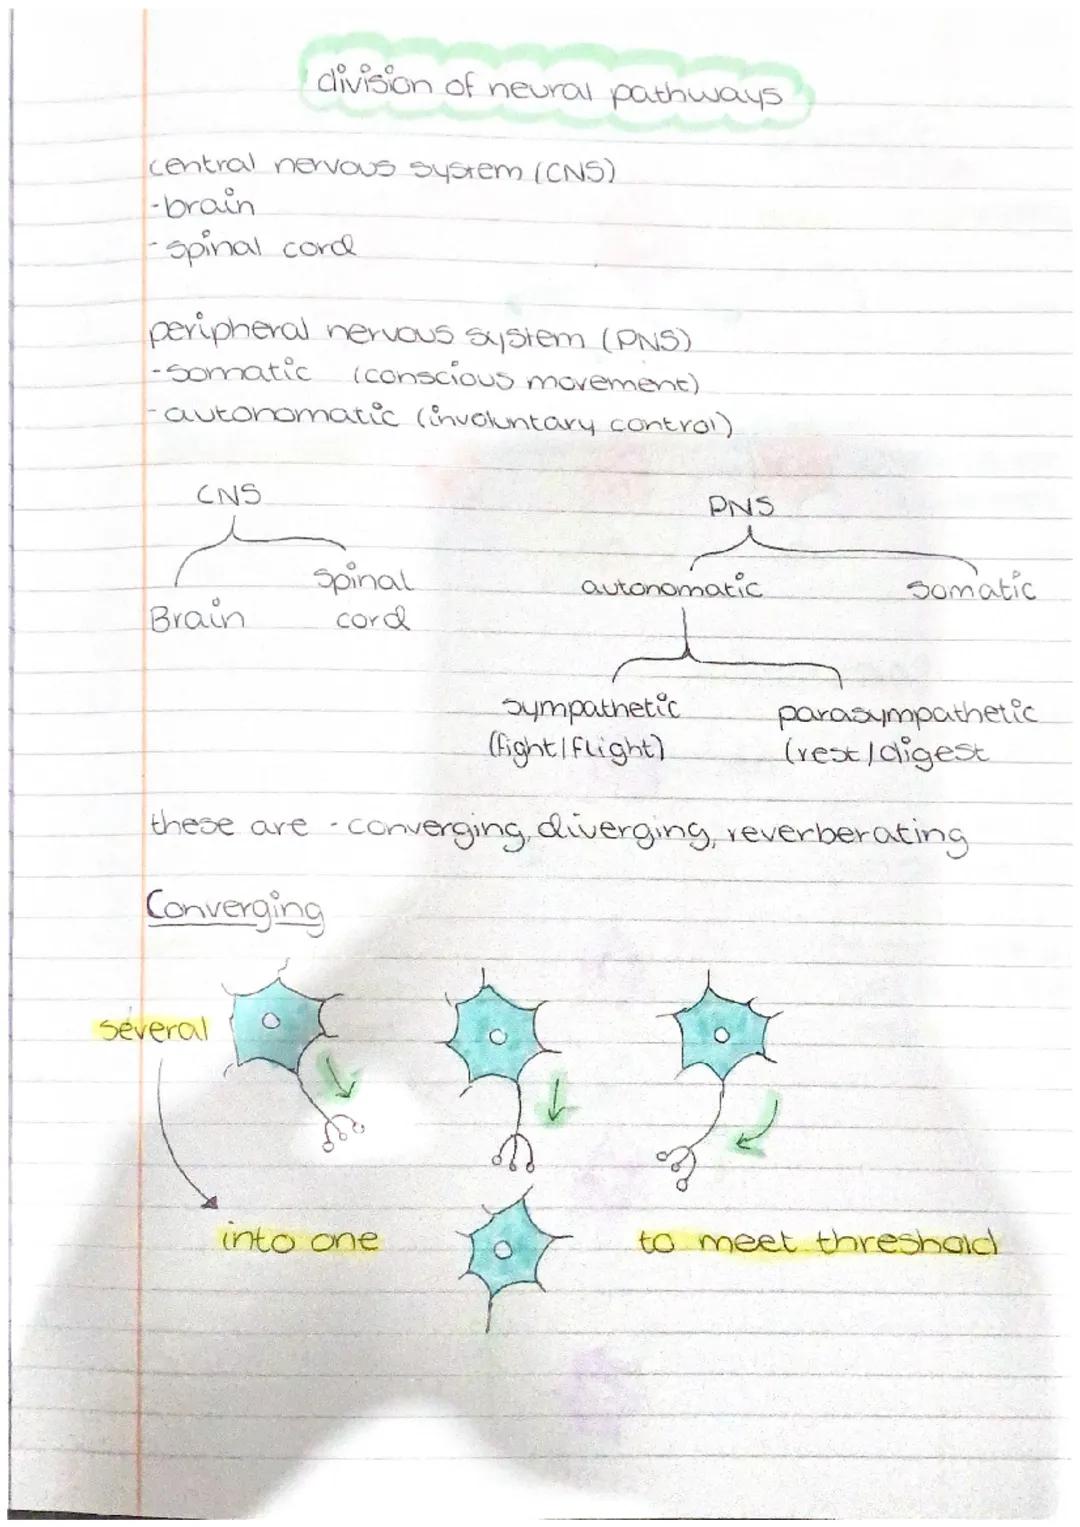 division of neural pathways
central nervous system (CNS)
-brain
-spinal cord
peripheral nervous system (PNS)
-somatic (conscious movement)
-autonomatic (involuntary control)
CNS
PNS
Brain
spinal
cord
autonomatic
somatic
sympathetic
(fight/flight)
parasympathetic
(rest/digest
these are - converging, diverging, reverberating
Converging
several
into one
to meet threshold